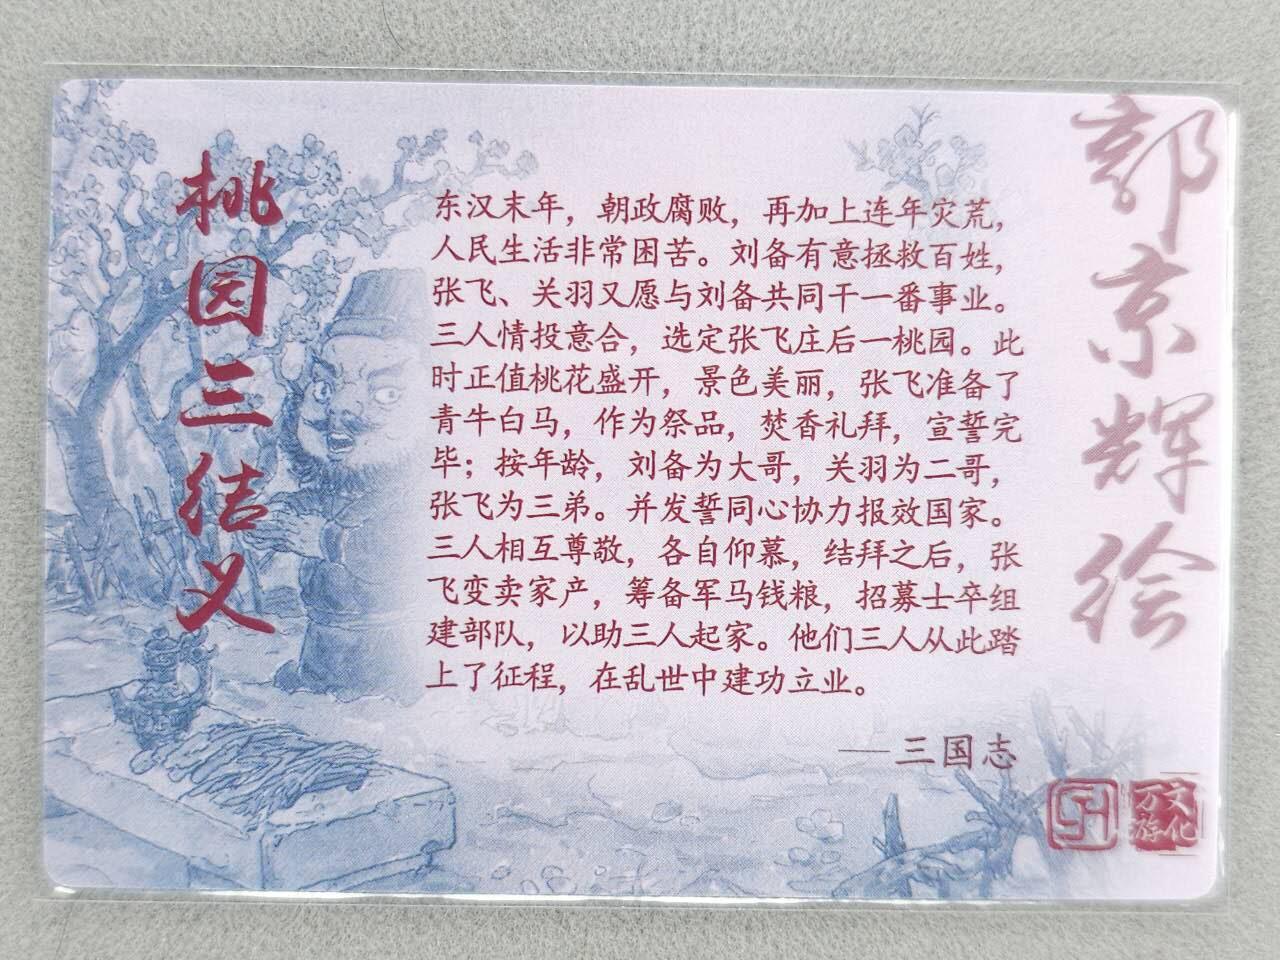 桃园三结义
东汉末年，朝政腐败，再加上连年灾荒，
人民生活非常困苦。刘备有意拯救百姓，
张飞、关羽又愿与刘备共同干一番事业。
三人情投意合，选定张飞庄后一桃园。此
时正值桃花盛开，景色美丽，张飞准备了
青牛白马，作为祭品，焚香礼拜，宣誓完
毕；按年龄，刘备为大哥，关羽为二哥，
张飞为三弟。并发誓同心协力报效国家。
三人相互尊敬，各自仰慕，结拜之后，张
飞变卖家产，筹备军马钱粮，招募士卒组
建部队，以助三人起家。他们三人从此踏
上了征程，在乱世中建功立业。
——三国志
郭京辉绘
万游文化